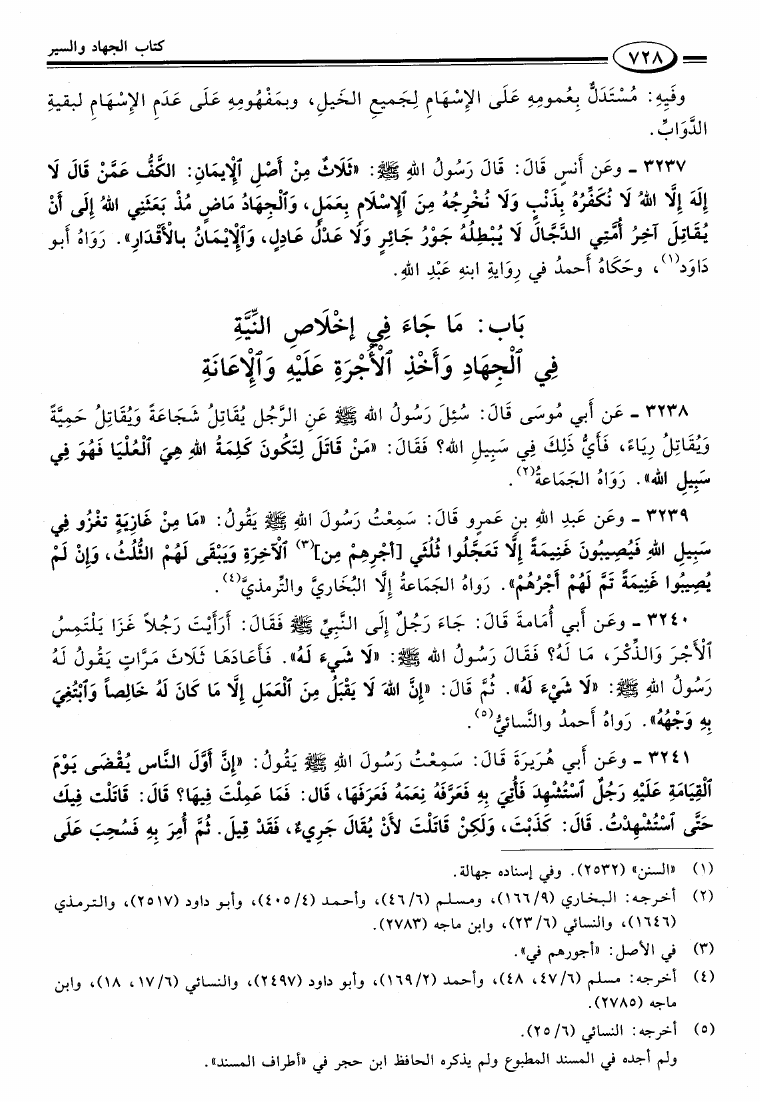 كتاب الجهاد والسير
٧٢٨
وفيهِ: مُسْتَدَلٌّ بِعُمومِهِ عَلَى الإِسْهَامِ لِجَميعِ الخَيلِ، وبمَفْهُومِهِ عَلَى عَدَمِ الإِسْهَامِ لبقيةِ
الدَّوَابِّ.
٣٢٣٧ ـ وعَن أَنسٍ قَالَ: قَالَ رَسُولُ اللهِ ﷺ: «ثَلَاثٌ مِنْ أَصْلِ ٱلْإِيمَانِ: الكَفُّ عَمَّنْ قَالَ لَا
إِلَهَ إِلَّا اللهُ لَا نُكَفِّرُهُ بِذَنْبٍ وَلَا نُخْرِجُهُ مِنَ ٱلْإِسْلَامِ بِعَمَلٍ، وَٱلْجِهَادُ مَاضٍ مُذْ بَعَثَنِي اللهُ إِلَى أَنْ
يُقَاتِلَ آخِرُ أُمَّتِي الدَّجَّالَ لَا يُبْطِلُهُ جَوْرُ جَائِرٍ وَلَا عَدْلُ عَادِلٍ، وَٱلْإِيمَانُ بالأَقْدَارِ». رَوَاهُ أَبو
دَاوَد(١)، وحَكَاهُ أَحمدُ في رِوَايَةِ ابنهِ عَبْدِ اللهِ.
بَاب: مَا جَاءَ فِي إخْلَاصِ النِّيَّةِ
فِي ٱلْجِهَادِ وَأَخْذِ ٱلْأُجْرَةِ عَلَيْهِ وَٱلْإِعَانَةِ
٣٢٣٨ ـ عَن أَبي مُوسَى قَالَ: سُئِلَ رَسُولُ الله ﷺ عَنِ الرَّجُلِ يُقَاتِلُ شَجَاعَةً وَيُقَاتِلُ حَمِيَّةً
وَيُقَاتِلُ رِيَاءً، فَأَيُّ ذَلِكَ فِي سَبِيلِ الله؟ فَقَالَ: «مَنْ قَاتَلَ لِتَكُونَ كَلِمَةُ اللهِ هِيَ ٱلْعُلْيَا فَهُوَ فِي
سَبِيلِ الله». رَوَاهُ الجَمَاعةُ(٢).
٣٢٣٩ ـ وعَن عَبدِ اللهِ بنِ عَمرٍو قَالَ: سَمِعْتُ رَسُولَ اللهِ ﷺ يَقُولُ: «مَا مِنْ غَازِيَةٍ تَغْزُو فِي
سَبِيلِ اللهِ فَيُصِيبُونَ غَنِيمَةً إِلَّا تَعَجَّلُوا ثُلُثَي [أَجْرِهِمْ مِن](٣) ٱلْآخِرَةِ وَيَبْقَى لَهُمُ الثُّلُثُ، وَإِنْ لَمْ
يُصِيبُوا غَنِيمَةً تَمَّ لَهُمْ أَجْرُهُمْ». رَوَاهُ الجَمَاعَةُ إِلَّا البُخَاريَّ والتِّرمذيَّ(٤).
٣٢٤٠ ـ وعَن أَبي أُمَامَةَ قَالَ: جَاءَ رَجُلٌ إِلَى النَّبِيِّ ﷺ فَقَالَ: أَرَأَيْتَ رَجُلاً غَزَا يَلْتَمِسُ
ٱلْأَجْرَ وَالذِّكْرَ، مَا لَهُ؟ فَقَالَ رَسُولُ الله ﷺ: «لَا شَيءَ لَهُ». فَأَعَادَهَا ثَلَاثَ مَرَّاتٍ يَقُولُ لَهُ
رَسُولُ اللهِ ﷺ: «لَا شَيْءَ لَهُ». ثُمَّ قَالَ: «إِنَّ اللهَ لَا يَقْبَلُ مِنَ ٱلْعَمَلِ إِلَّا مَا كَانَ لَهُ خَالِصاً وَٱبْتُغِيَ
بِهِ وَجْهُهُ». رَوَاهُ أَحمدُ والنَّسائيُّ(٥).
٣٢٤١ ـ وعَن أَبي هُرَيرَةَ قَالَ: سَمِعْتُ رَسُولَ اللهِ ﷺ يَقُولُ: «إِنَّ أَوَّلَ النَّاس يُقْضَى يَوْمَ
ٱلْقِيَامَةِ عَلَيْهِ رَجُلٌ ٱسْتُشْهِدَ فَأُتِيَ بِهِ فَعَرَّفَهُ نِعَمَهُ فَعَرَفَهَا، قَال: فَمَا عَمِلْتَ فِيهَا؟ قَالَ: قَاتَلْت فِيكَ
حَتَّى ٱسْتُشْهِدْتُ. قَالَ: كَذَبْتَ، وَلَكِنْ قَاتَلْتَ لأَنْ يُقَالَ جَرِيءٌ، فَقَدْ قِيلَ. ثُمَّ أُمِرَ بِهِ فَسُحِبَ عَلَى
(١) «السنن» (٢٥٣٢). وفي إسناده جهالة.
(٢) أخرجه: البخاري (١٦٦/٩)، ومسلم (٤٦/٦)، وأحمد (٤٠٥/٤)، وأبو داود (٢٥١٧)، والترمذي
(١٦٤٦)، والنسائي (٢٣/٦)، وابن ماجه (٢٧٨٣).
(٣) في الأصل: «أجورهم في».
(٤) أخرجه: مسلم (٤٧/٦، ٤٨)، وأحمد (١٦٩/٢)، وأبو داود (٢٤٩٧)، والنسائي (١٧/٦، ١٨)، وابن
ماجه (٢٧٨٥).
(٥) أخرجه: النسائي (٢٥/٦).
ولم أجده في المسند المطبوع ولم يذكره الحافظ ابن حجر في «أطراف المسند».